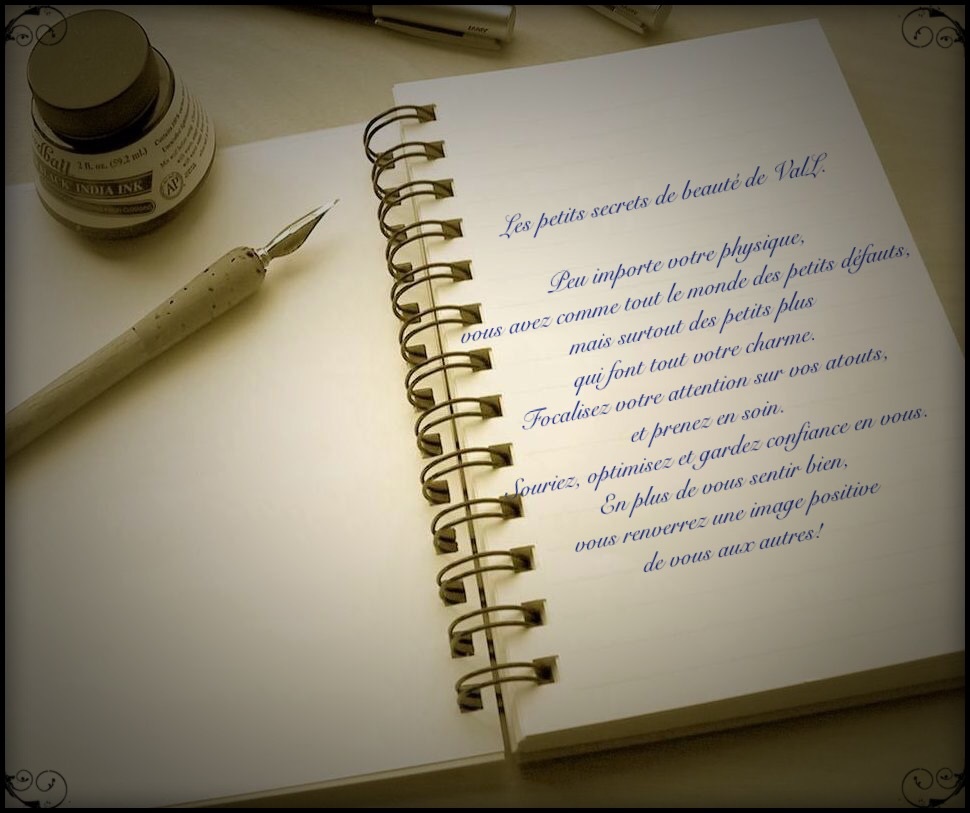 LAMY
2 fl. oz. (59.2 mL)
INDIA INK
AP
Les petits secrets de beauté de ValL.
Peu importe votre physique,
vous avez comme tout le monde des petits défauts,
mais surtout des petits plus
qui font tout votre charme.
Focalisez votre attention sur vos atouts,
et prenez en soin.
Souriez, optimisez et gardez confiance en vous.
En plus de vous sentir bien,
vous renverrez une image positive
de vous aux autres!